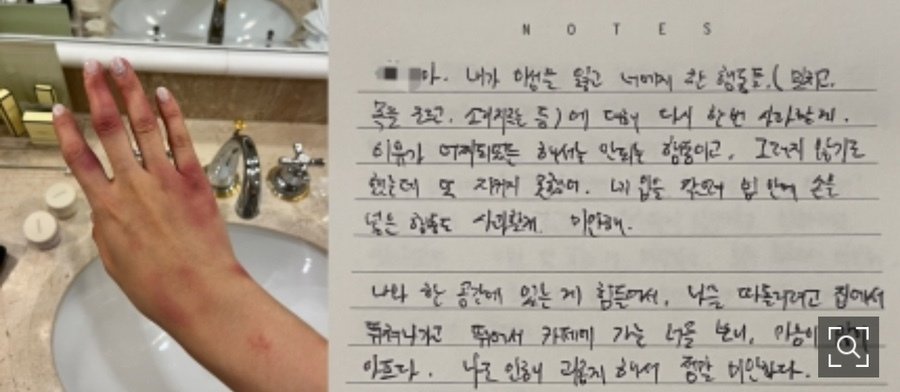 NOTES
야. 내가 이성을 잃고 너에게 한 행동들,( 밀치고,
목을 조르고, 소리지르는 등)에 대해 다시 한번 사과할게.
이유가 어찌되었든 해서는 안되는 행동이고, 그러지 않기로
했는데 또 지키지 못했어. 네 입을 막으려 입 안에 손을
넣은 행동도 사과할게. 미안해.
나와 한 공간에 있는 게 힘들어서, 나를 따돌리려고 집에서
뛰쳐나가고 뛰어서 카페에 가는 너를 보니, 마음이
아프다. 나로 인해 괴롭게 해서 정말 미안하다.